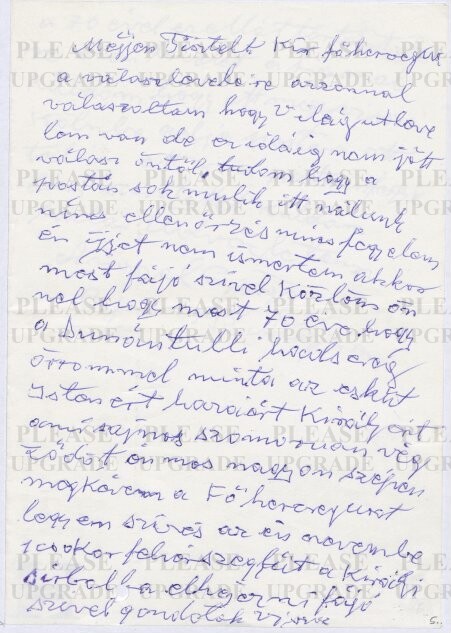 Méjjen Tisztelt Kir főherceg úr
a válaszlevelére azonnal
válaszoltam hogy Világ utleve
lem van de ez idáig nem jött
válasz öntöl, tudom hogy a
postán sok mulik itt nálunk
nincs ellenörzés nincs fegyelem
én Íjjet nem ismertem akkor
most fájó szivel Közlöm ön
nel hogy most 70 éve hogy
a Dunántulli hadsereg
örrömmel mint a az esküt
Istenért hazáért Királyért
ami sajnos szomorúan vég
ződöt én mos nagyon szépen
megkövem a Főherceg urat
legyen szives az én nevembe
1 csokor fehér szegfüt a Királyi
Sirbol a elhejezni fájó
szivel gondolok vissza
5.
PLEASE UPGRADE